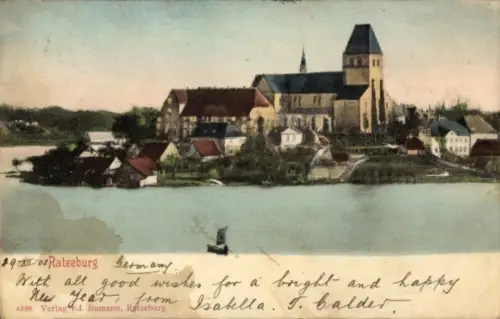 Ratzeburg Germany
With all good wishes for a bright and happy
New Year, from Isabella. T. Calder.
Verlag v. Ed. Rumann, Ratzeburg